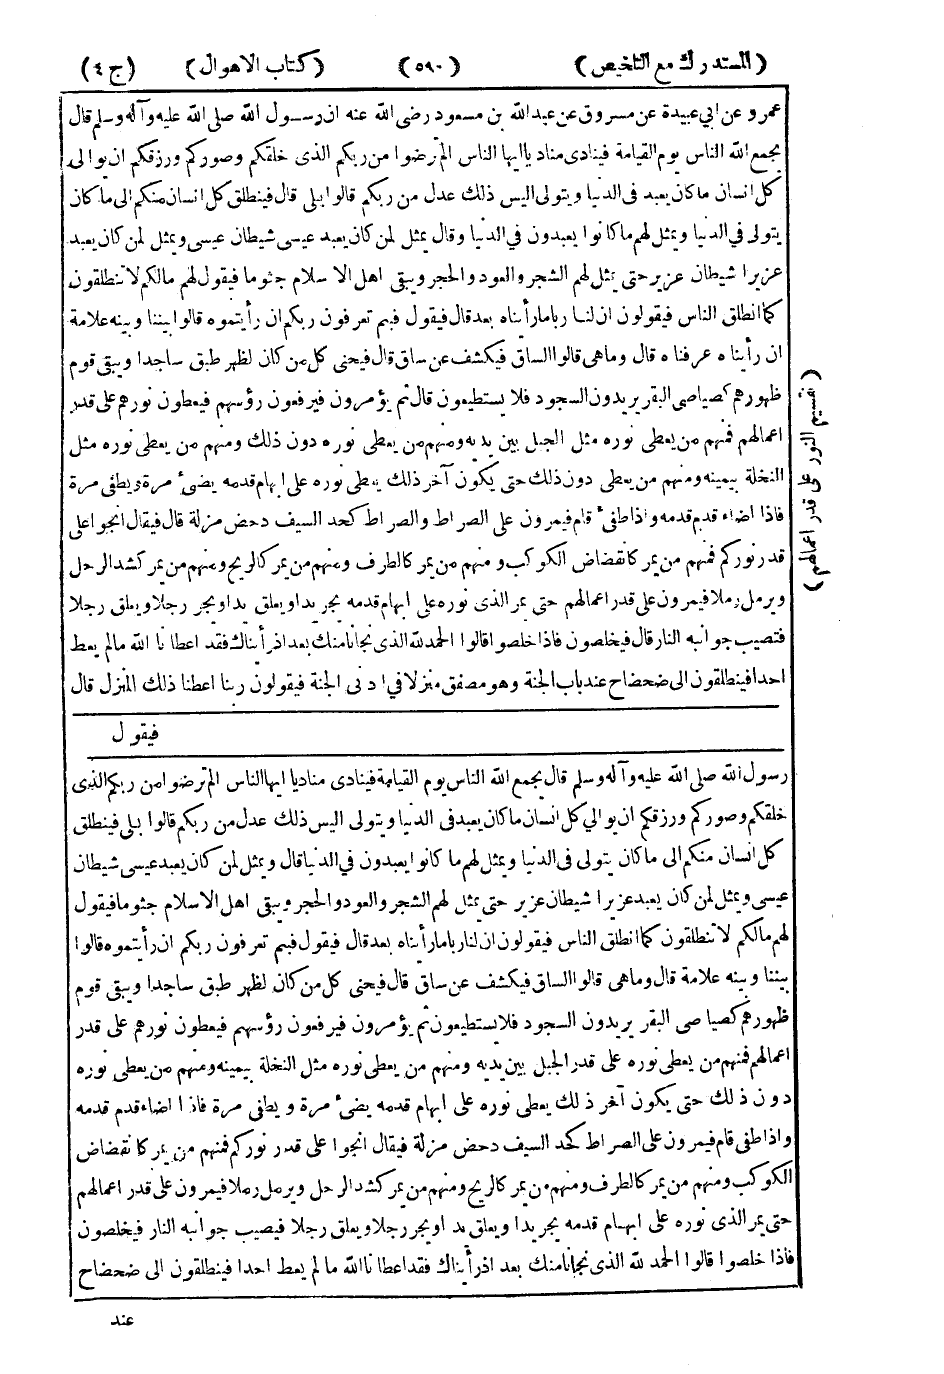 (المستدرك مع التلخيص) (٥٩٠) (كتاب الاهوال) (ج ٤)
عمرو عن ابي عبيدة عن مسروق عن عبدالله بن مسعود رضى الله عنه ان رسول الله صلى الله عليه وآله وسلم قال
يجمع الله الناس يوم القيامة فينادى مناد ياايها الناس الم ترضوا من ربكم الذى خلقكم وصوركم ورزقكم ان يوالى
كل انسان ما كان يعبد فى الدنيا ويتولى اليس ذلك عدل من ربكم قالوا بلى قال فينطلق كل انسان منكم الى ما كان
يتولى في الدنيا ويمثل لهم ما كانوا يعبدون في الدنيا وقال يمثل لمن كان يعبد عيسى شيطان عيسى ويمثل لمن كان يعبد
عزيرا شيطان عزير حتى يمثل لهم الشجر والعود والحجر ويبقى اهل الاسلام جثوما فيقول لهم مالكم لا تنطلقون
كما انطلق الناس فيقولون ان لنا ربا ما رأيناه بعد قال فيقول فبم تعرفون ربكم ان رأيتموه قالوا بيننا وبينه علامة
ان رأيناه عرفناه قال وما هي قالوا الساق فيكشف عن ساق قال فيحنى كل من كان لظهر طبق ساجدا ويبقى قوم
ظهورهم كصياصى البقر يريدون السجود فلا يستطيعون قال ثم يؤمرون فيرفعون رؤسهم فيعطون نورهم على قدر
اعمالهم فمنهم من يعطى نوره مثل الجبل بين يديه ومنهم من يعطى نوره دون ذلك ومنهم من يعطى نوره مثل
النخلة بيمينه ومنهم من يعطى دون ذلك حتى يكون آخر ذلك يعطى نوره على ابهام قدمه يضئ مرة ويطفى مرة
فاذا اضاء قدم قدمه واذا طفئ قام فيمرون على الصراط والصراط كحد السيف دحض مزلة قال فيقال انجوا على
قدر نوركم فمنهم من يمر كانقضاض الكوكب ومنهم من يمر كالطرف ومنهم من يمر كالريح ومنهم من يمر كشد الرحل
ويرمل رملا فيمرون على قدر اعمالهم حتى يمر الذى نوره على ابهام قدمه يجر يدا ويعلق يدا ويجر رجلا ويعلق رجلا
فتصيب جوانبه النار قال فيخلصون فاذا خلصوا قالوا الحمد لله الذى نجانا منك بعد اذ رأيناك فقد اعطانا الله مالم يعط
احدا فينطلقون الى ضحضاح عند باب الجنة وهو مصفق منزلا في ادنى الجنة فيقولون ربنا اعطنا ذلك المنزل قال
فيقول
(تقسيم النور على قدر اعمالهم)
رسول الله صلى الله عليه وآله وسلم قال يجمع الله الناس يوم القيامة فينادى مناديا ايها الناس الم ترضوا من ربكم الذى
خلقكم وصوركم ورزقكم ان يوالي كل انسان ما كان يعبد فى الدنيا ويتولى اليس ذلك عدل من ربكم قالوا بلى فينطلق
كل انسان منكم الى ما كان يتولى فى الدنيا ويمثل لهم ما كانوا يعبدون في الدنيا قال ويمثل لمن كان يعبد عيسى شيطان
عيسى ويمثل لمن كان يعبد عزيرا شيطان عزير حتى يمثل لهم الشجر والعود والحجر ويبقى اهل الاسلام جثوما فيقول
لهم مالكم لا تنطلقون كما انطلق الناس فيقولون ان لنا ربا ما رأيناه بعد قال فيقول فبم تعرفون ربكم ان رأيتموه قالوا
بيننا وبينه علامة قال وما هى قالوا الساق فيكشف عن ساق قال فيحنى كل من كان لظهر طبق ساجدا ويبقى قوم
ظهورهم كصياصى البقر يريدون السجود فلا يستطيعون ثم يؤمرون فيرفعون رؤسهم فيعطون نورهم على قدر
اعمالهم فمنهم من يعطى نوره على قدر الجبل بين يديه ومنهم من يعطى نوره مثل النخلة بيمينه ومنهم من يعطى نوره
دون ذلك حتى يكون آخر ذلك يعطى نوره على ابهام قدمه يضئ مرة ويطفى مرة فاذا اضاء قدم قدمه
واذا طفى قام فيمرون على الصراط كحد السيف دحض مزلة فيقال انجوا على قدر نوركم فمنهم من يمر كانقضاض
الكوكب ومنهم من يمر كالطرف ومنهم من يمر كالريح ومنهم من يمر كشد الرحل ويرمل رملا فيمرون على قدر اعمالهم
حتى يمر الذى نوره على ابهام قدمه يجر يدا ويعلق يدا ويجر رجلا ويعلق رجلا فيصيب جوانبه النار فيخلصون
فاذا خلصوا قالوا الحمد لله الذى نجانا منك بعد اذ رأيناك فقد اعطانا الله ما لم يعط احدا فينطلقون الى ضحضاح
عند